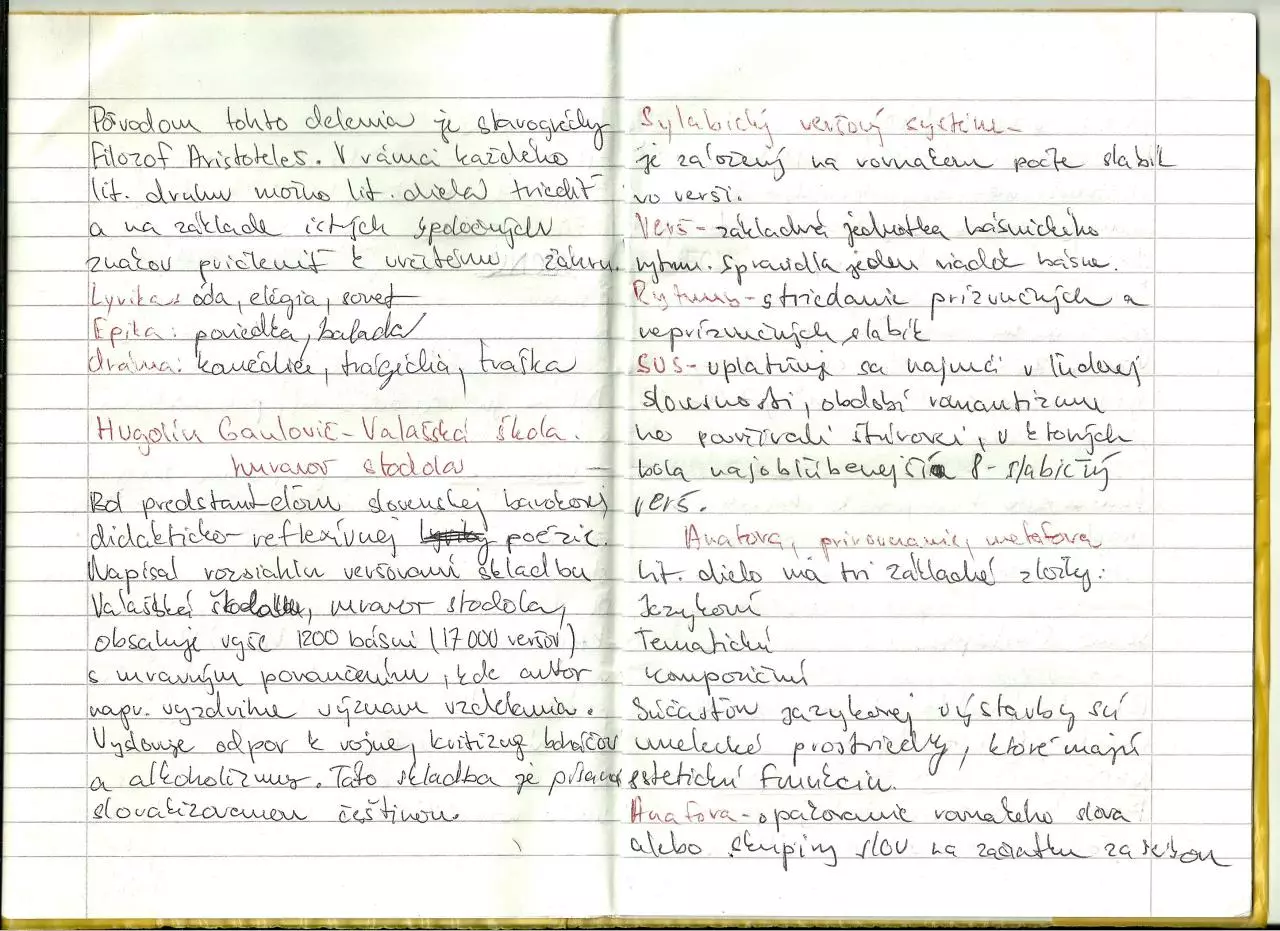 Pôvodom tohto delenia je starogrécky
filozof Aristoteles. V rámci každého
lit. druhu možno lit. diela triediť
a na základe istých spoločných
znakov pričleniť k určitému žánru.
Lyrika: óda, elégia, sonet
Epika: poviedka, balada
dráma: komédia, tragédia, fraška
Hugolín Gavlovič - Valašská škola.
mravov stodola
Bol predstaviteľom slovenskej barokovej
didakticko-reflexívnej poézie.
Napísal rozsiahlu veršovanú skladbu
Valašská, mravov stodola,
obsahuje vyše 1200 básní (17 000 veršov)
s mravným ponaučením, kde autor
napr. vyzdvihne význam vzdelania.
Vyslovuje odpor k vojne, kritizuje boháčov
a alkoholizmus. Táto skladba je písaná
slovakizovanou češtinou.
Sylabický veršový systém -
je založený na rovnakom počte slabík
vo verši.
Verš - základná jednotka básnického
rytmu. Spravidla jeden riadok básne.
Rytmus - striedanie prízvučných a
neprízvučných slabík
SVS - uplatňuje sa najmä v ľudovej
slovesnosti, období romantizmu
ho používali štúrovci, u ktorých
bola najobľúbenejší 8-slabičný
verš.
Anafora, prirovnanie, metafora
Lit. dielo má tri základné zložky:
Jazykovú
Tematickú
kompozičnú
Súčasťou jazykovej výstavby sú
umelecké prostriedky, ktoré majú
estetickú funkciu.
Anafora - opakovanie rovnakého slova
alebo skupiny slov na začiatku za sebou